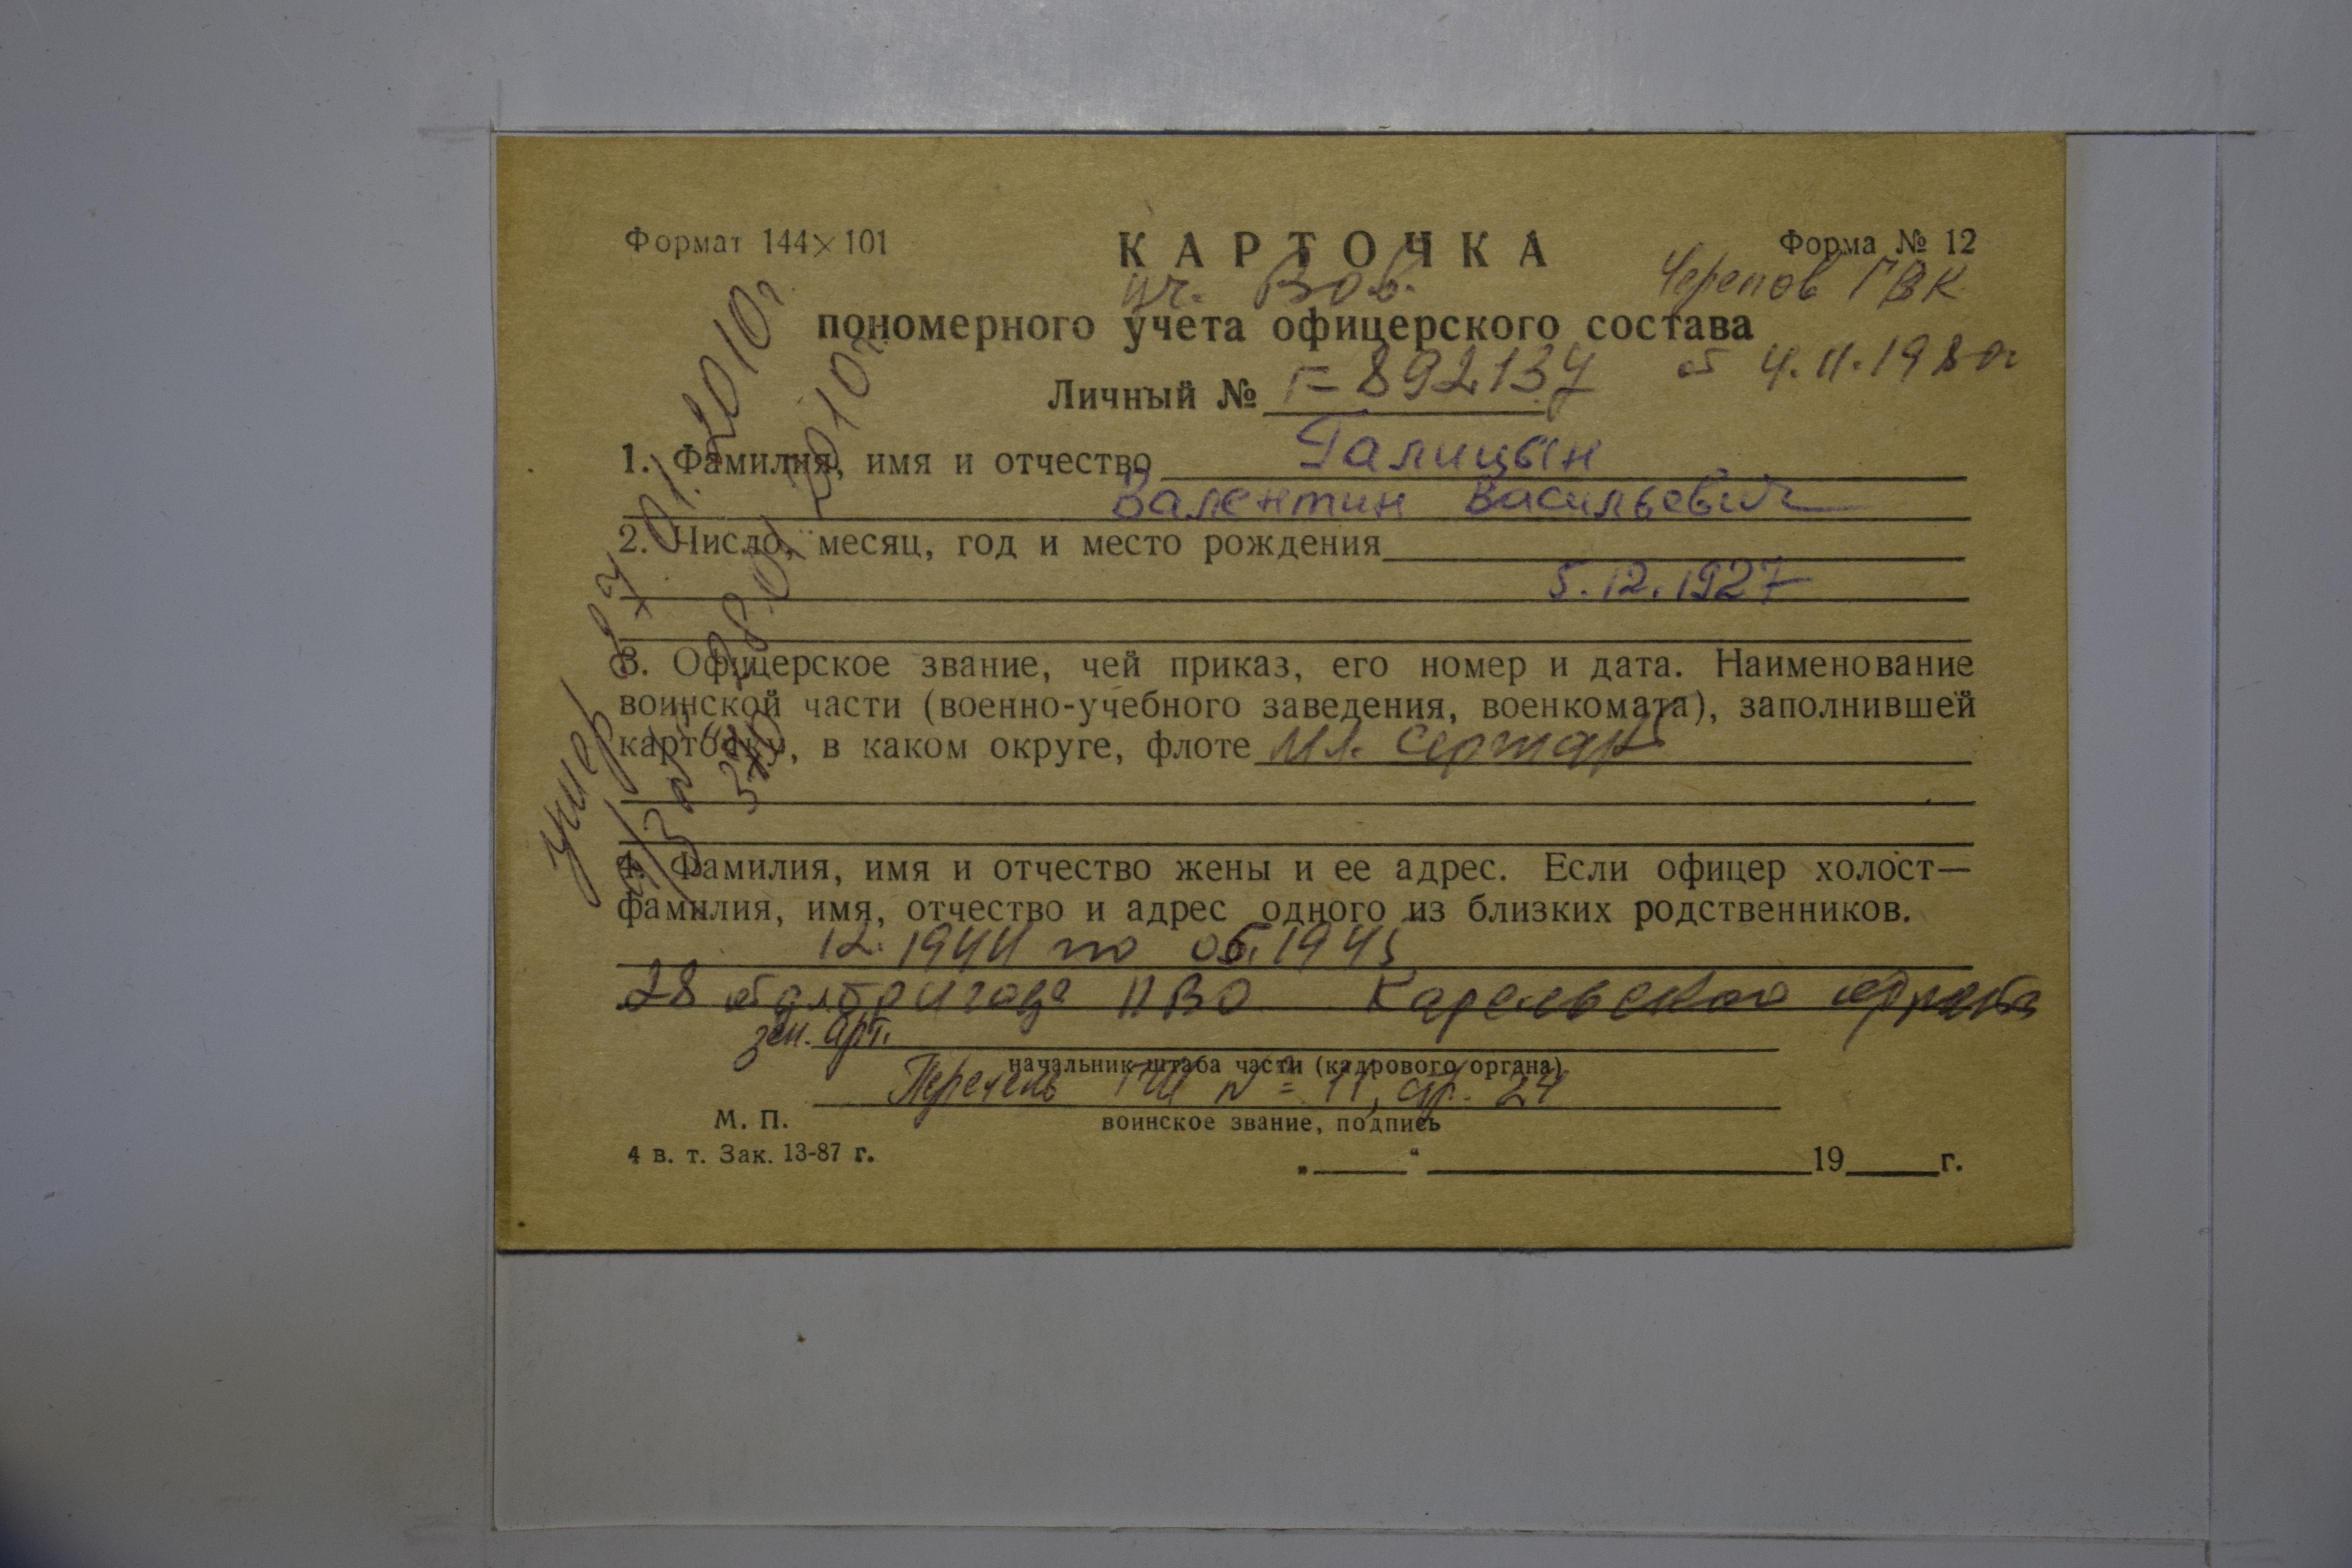 Формат 144×101
КАРТОЧКА
Форма № 12
уч. ВОВ.
Черепов ГВК
пономерного учета офицерского состава
от 4.11.1980г
Личный № Г-892137
1. Фамилия, имя и отчество Галицын
Валентин Васильевич
2. Число, месяц, год и место рождения
5.12.1927
3. Офицерское звание, чей приказ, его номер и дата. Наименование
воинской части (военно-учебного заведения, военкомата), заполнившей
карточку, в каком округе, флоте Мл. Сержант
4. Фамилия, имя и отчество жены и ее адрес. Если офицер холост—
фамилия, имя, отчество и адрес одного из близких родственников.
12.1944 по 05.1945
28 ПВО Карельского фронта
зен. арт.
начальник штаба части (кадрового органа)
Перечень ГШ № 11, стр. 24
М. П.
воинское звание, подпись
4 в. т. Зак. 13-87 г.
„ “ 19 г.
умер 27.01.2010г
28.01.2010г.